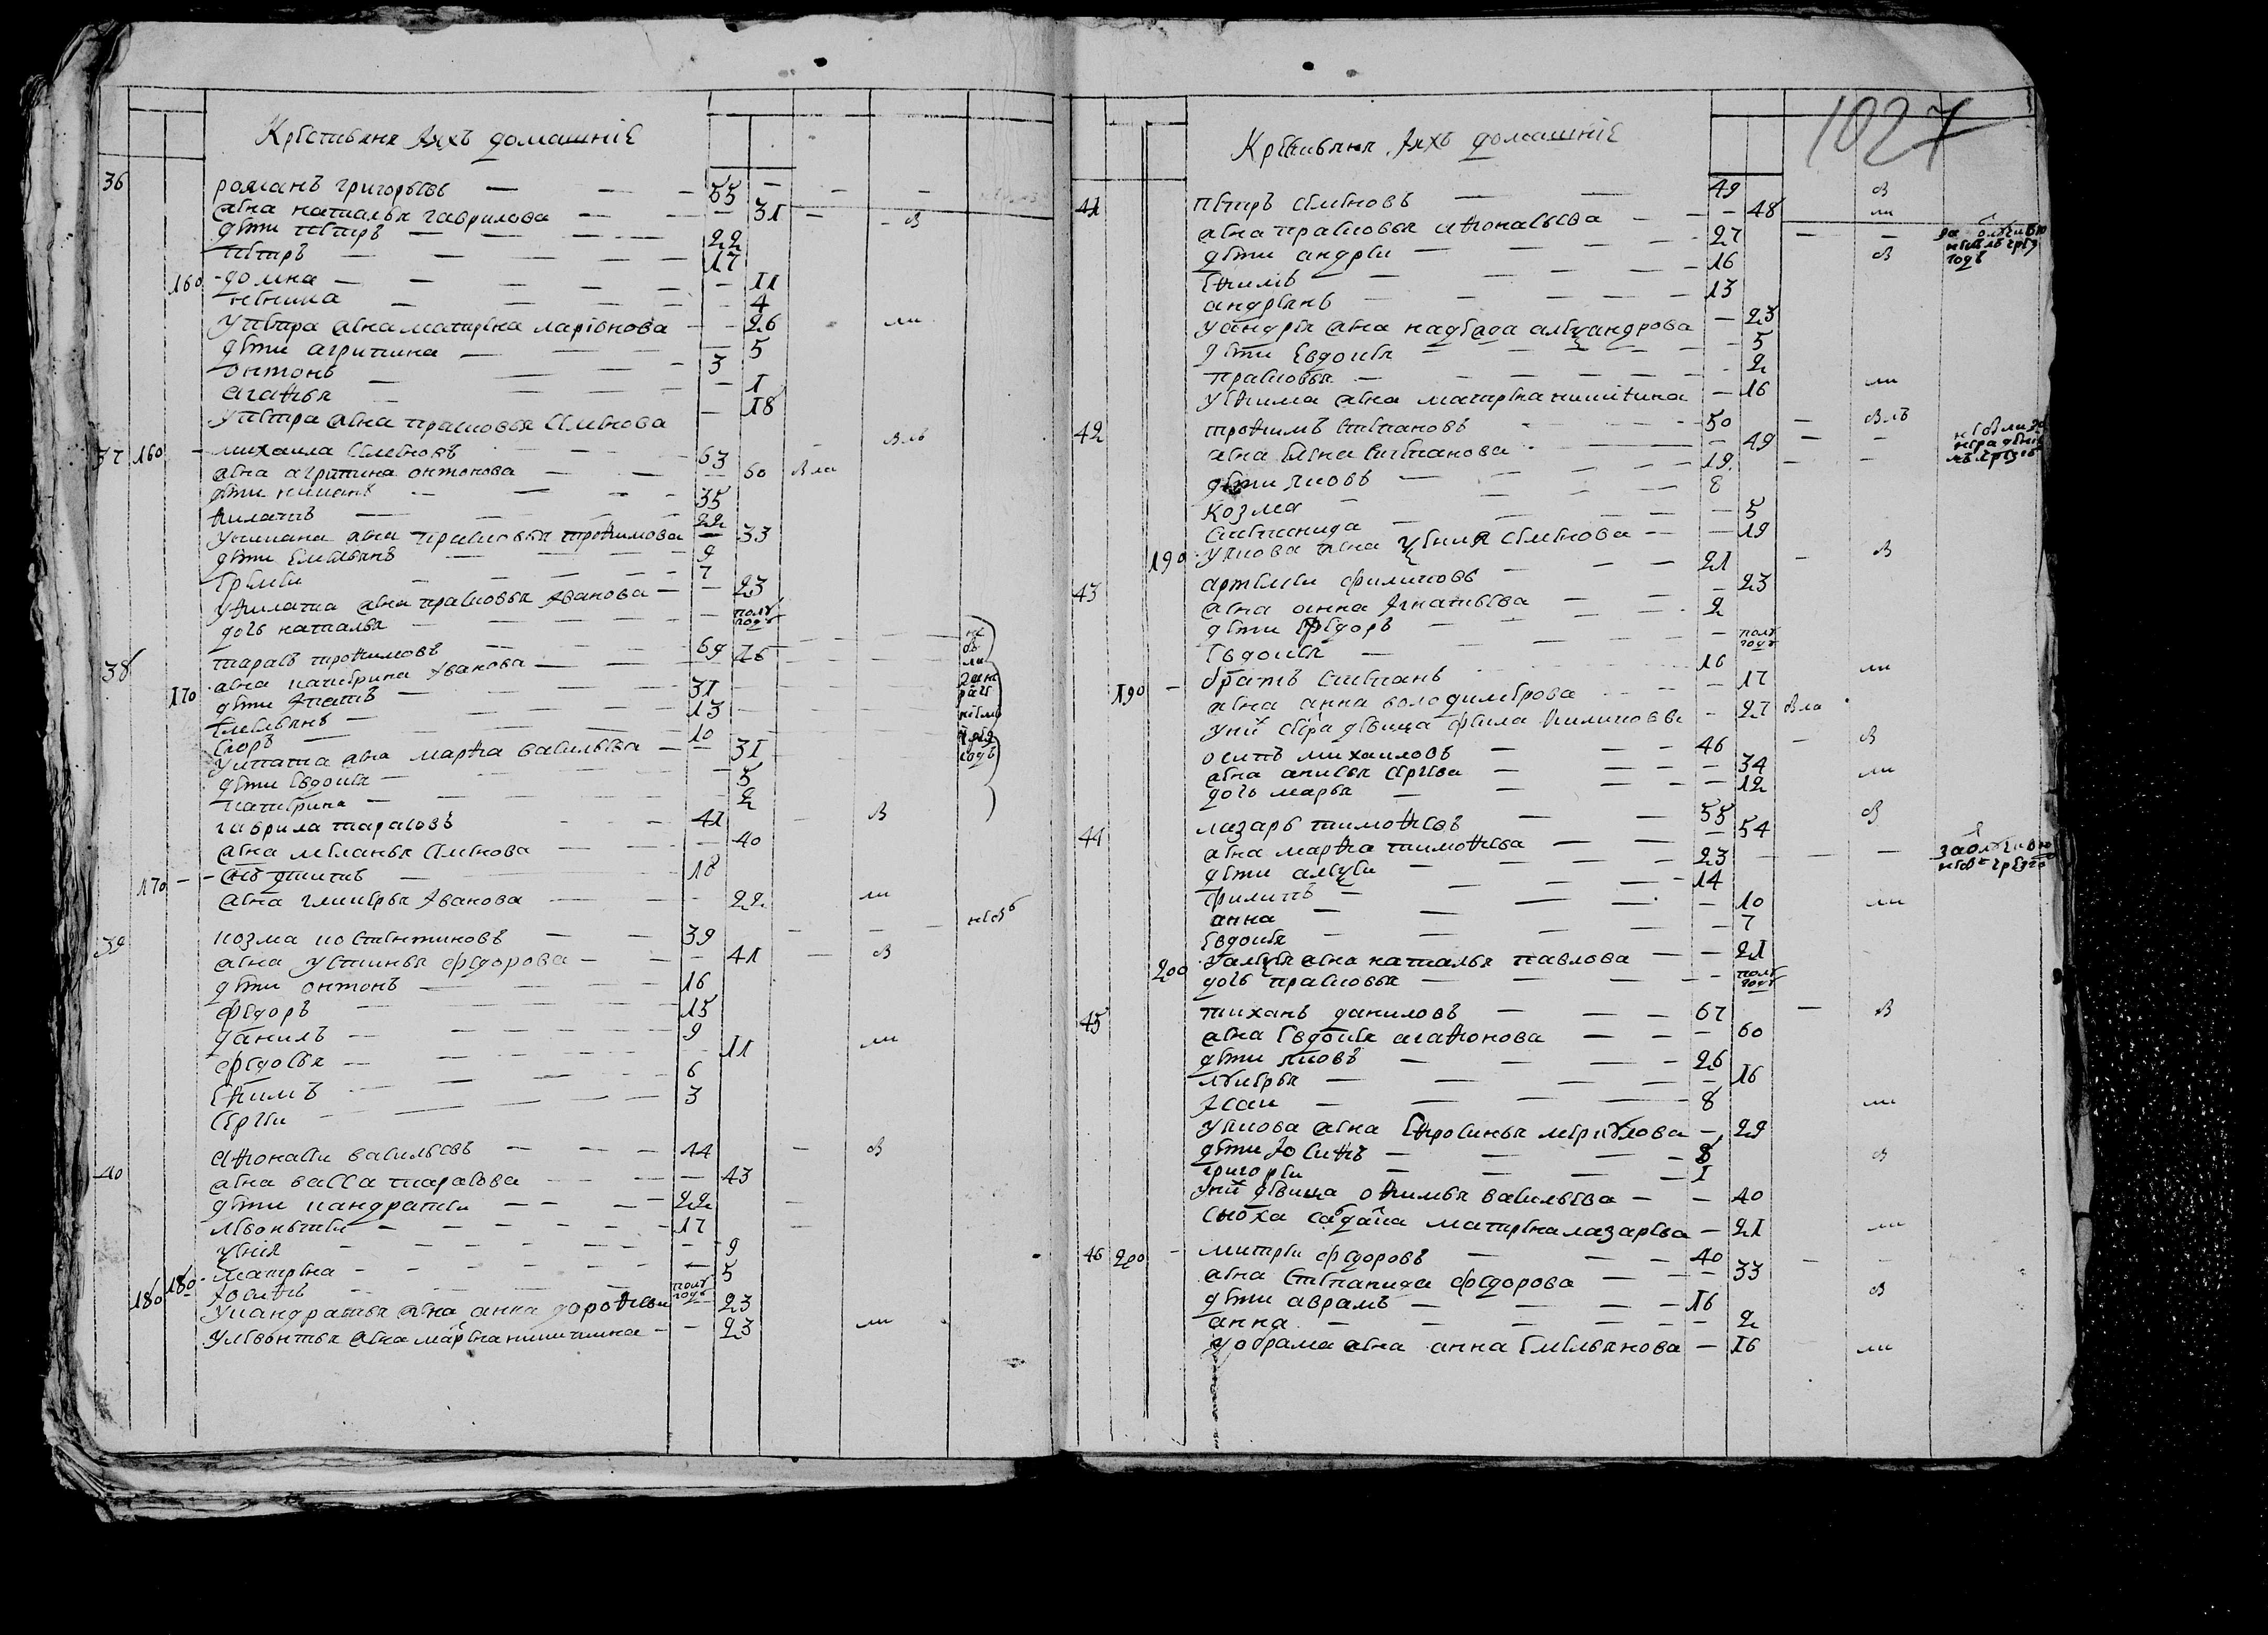 Крестьяня и ихъ домашніе
36 романъ григорьевъ — 55
жена наталья гаврилова — 31 — в
дети петръ — 22
петръ — 17
160 домна — 11
ненила — 4
у петра жена матрена ларіонова — 26 ли
дети агрипина — 5
онтонъ — 3
агафья — 1
у петра жена прасковья семенова — 18
37 160 михаила семеновъ — 63
жена агрипина онтонова — 60
дети
филатъ — 22
жена прасковья трофимова — 33
дети емельянъ — 9
еремеи — 7
у филата жена прасковья иванова — 23
дочь наталья — полъ годъ
38 тарасъ трофимовъ — 69
170 жена катерина иванова —
дети ипатъ — 31
емельянъ — 13
егоръ — 10
у ипата жена марфа васильева — 31
дети евдокея — 5
катерина — 2
гаврила тарасовъ — 41 — в
жена меланья семенова — 40
170 — сынъ — 18
жена гликерья иванова — 22 ли
39 козма костентиновъ — 39
жена устинья федорова — 41 — в
дети онтонъ — 16
федоръ — 15
данилъ — 9
федосья — 11 ли
ефимъ — 6
сергеи — 3
40 афонасеи васильевъ — 44 — в
жена васса тарасова — 43
дети кандратеи — 22
левонтеи — 17
9
матрена — 5
180 180 иосифъ — полъ годъ
у кандратья жена анна дорофеева 23
у левонтья жена марена никитина — 23 ли
1027
Крестьяня и ихъ домашніе
41 петръ семеновъ — 49 в
жена прасковья афонасьева — 48 ли
дети андреи — 27
ефимъ — 16 в
андреянъ — 13
у андрея жена надежда александрова — 23
дети евдокея — 5
прасковья — 2
у ефима жена матрена никитина — 16 ли
42 трофимъ степановъ — 50
жена елена степанова — 49
дети яковъ — 19
козма — 8
степанида — 5
190 у якова жена ксения семенова — 19
43 артемеи филиповъ — 21 — в
жена анна игнатьева — 23
дети федоръ — 2
евдокея — полъ годъ
190 — братъ степанъ — 16
жена анна володимерова — 17 ли
27
осипъ михаиловъ — 46 — в
жена анисья сергева — 34
дочь марья — 12 ли
44 лазарь тимофеевъ — 55 в
жена марфа тимофеева — 54
дети алексеи — 23
филипъ — 14
анна — 10 ли
евдокея — 7
200 у алексея жена наталья павлова — 21
дочь прасковья — полъ годъ
45 тиханъ даниловъ — 67 — в
жена евдокея агафонова — 60
дети яковъ — 26
лукерья — 16
исаи — 8 ли
у якова жена ефросинья меркулова — 29
дети иосифъ — 8 в
григореи — 1
у нихъ девица офимья васильева — 40
матрена лазарева — 21 ли
46 200 — митреи федоровъ — 40
жена степанида федорова — 33
дети аврамъ — 16 в
анна — 2
у аврама жена анна емельянова — 16 ли